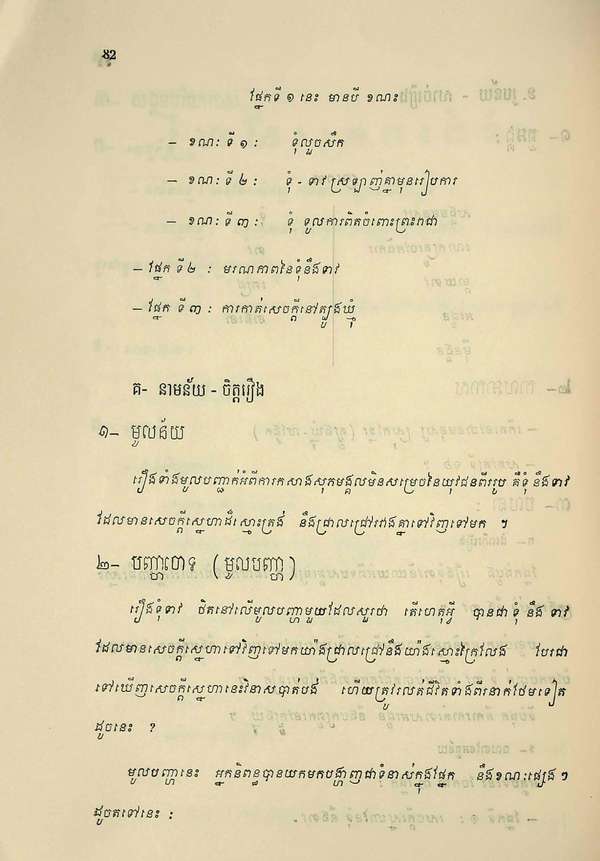 82
ផ្នែកទី ១ នេះ មានបី ខណះ
– ខណៈ ទី ១ : ទុំលួចសឹក
– ខណៈ ទី ២ : ទុំ - ទាវ ស្រឡាញ់គ្នាមុនរៀបការ
– ខណៈ ទី ៣ : ទុំ ទូលការពិតចំពោះព្រះរាជា
– ផ្នែក ទី ២ : មរណភាពនៃទុំនឹងទាវ
– ផ្នែក ទី ៣ : ការកាត់សេចក្ដីនៅត្បូងឃ្មុំ
គ- នាមន័យ - ចិត្តរឿង
១– មូលន័យ
រឿងទាំងមូលបញ្ជាក់អំពីការកសាងសុភមង្គលមិនសម្រេចនៃយុវជនពីររូប គឺទុំ នឹងទាវ
ដែលមានសេចក្ដីស្នេហាដ៏ស្មោះត្រង់ នឹងជ្រាលជ្រៅរវាងគ្នាទៅវិញទៅមក ។
២– បញ្ហាចោទ ( មូលបញ្ហា )
រឿងទុំទាវ ឋិតនៅលើមូលបញ្ហាមួយដែលសួរថា តើហេតុអ្វី បានជា ទុំ នឹង ទាវ
ដែលមានសេចក្ដីស្នេហាទៅវិញទៅមកយ៉ាងជ្រាលជ្រៅនឹងយ៉ាងស្មោះវៃក្រលែង បែរជា
ទៅឃើញសេចក្ដីស្នេហានេះវិនាសបាត់បង់ ហើយត្រូវរលត់ជីវិតទាំងពីរនាក់ថែមទៀត
ដូចនេះ ?
មូលបញ្ហានេះ អ្នកនិពន្ធបានយកមកបង្ហាញជាទំនាស់ក្នុងផ្នែក នឹងខណៈផ្សេង ៗ
ដូចតទៅនេះ :